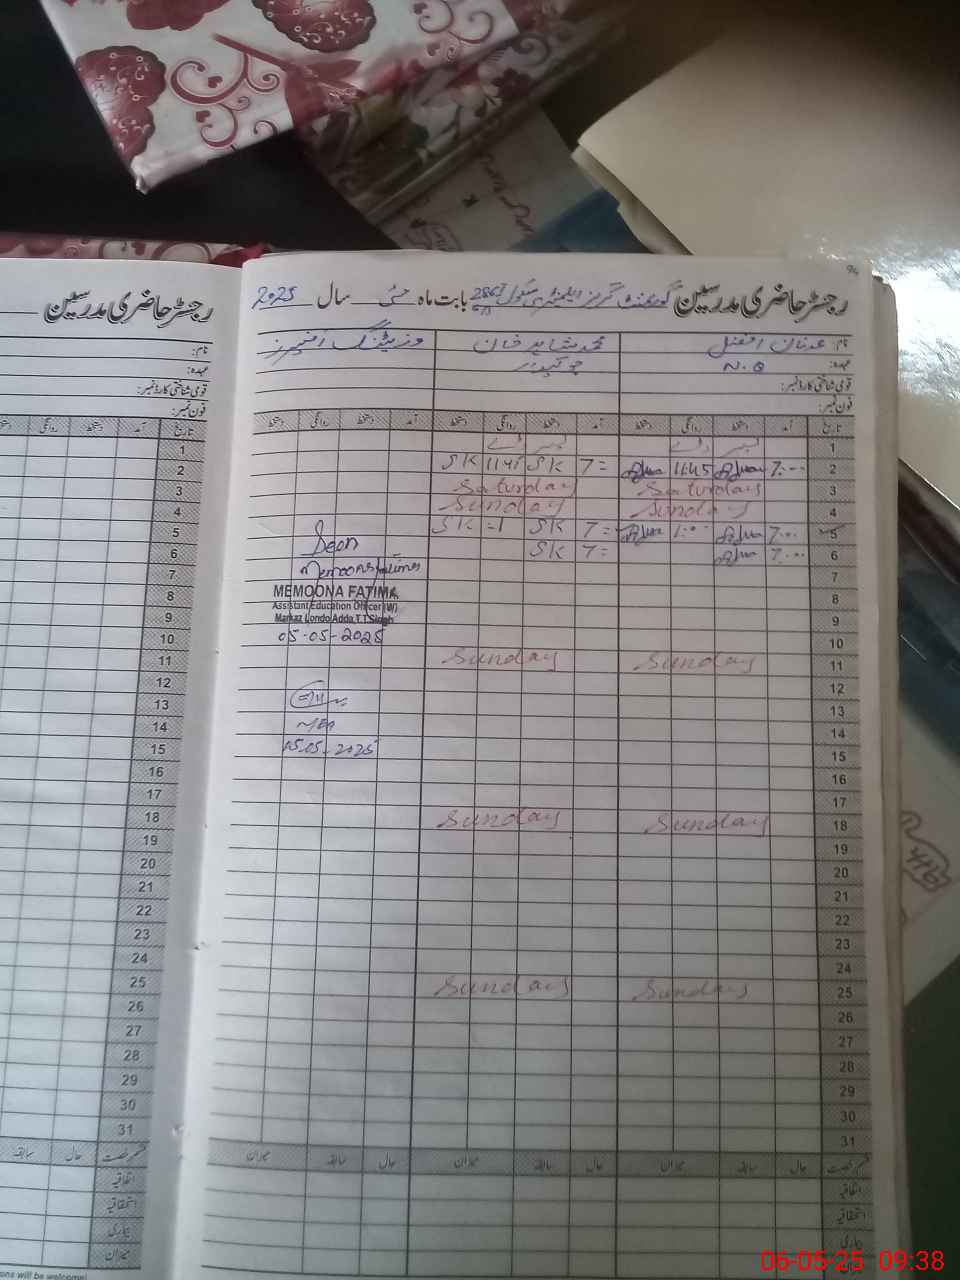 94
رجسٹر حاضری مدرسین گورنمنٹ گرلز ایلیمنٹری سکول بابت ماہ مئی سال 2025
رجسٹر حاضری مدرسین
نام: عدنان افضل محمد شاہد خان وزیٹنگ آفیسرز
عہدہ: N.Q چوکیدار
قومی شناختی کارڈ نمبر:
فون نمبر:
نام:
عہدہ:
قومی شناختی کارڈ نمبر:
فون نمبر:
تاریخ آمد دستخط روانگی دستخط آمد دستخط روانگی دستخط آمد دستخط روانگی دستخط
تاریخ آمد دستخط روانگی
1 لیبر ڈے لیبر ڈے
2 7:00 11:45 7= SK 11:45 SK
3 Saturday Saturday
4 Sunday Sunday
5 7:00 1:00 7= SK =1 SK
6 7:00 7= SK
Seen
Memoona Fatima
7
8
MEMOONA FATIMA
Assistant Education Officer (W)
Markaz Londo Adda T.T Singh
9
10
05-05-2025
11 Sunday Sunday
12
13
14
MEA
15
05.05-2025
16
17
18 Sunday Sunday
19
20
21
22
23
24
25 Sunday Sunday
26
27
28
29
30
31
1
2
3
4
5
6
7
8
9
10
11
12
13
14
15
16
17
18
19
20
21
22
23
24
25
26
27
28
29
30
31
قسم رخصت حال سابقہ میزان حال سابقہ میزان حال سابقہ میزان
اتفاقیہ
استحقاقیہ
بیماری
میزان
قسم رخصت حال سابقہ
اتفاقیہ
استحقاقیہ
بیماری
میزان
ons will be welcome!
06-05-25 09:38